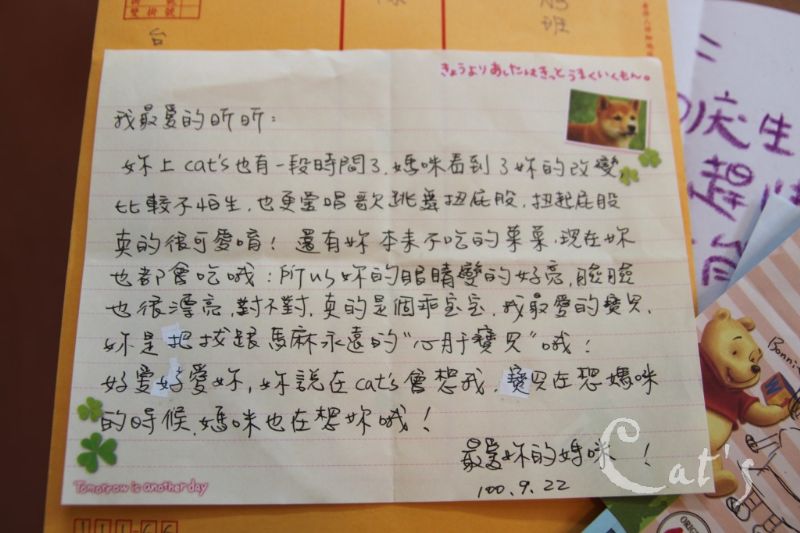 掛號
號
台
班
きょうよりあしたはきっとうまくいくもん。
我最愛的昕昕：
妳上cat's也有一段時間了，媽咪看到了妳的改變，
比較不怕生，也更愛唱歌跳舞扭屁股，扭起屁股
真的很可愛唷！還有妳本來不吃的菓菓，現在妳
也都會吃哦：所以妳的眼睛變的好亮，臉臉
也很漂亮，對不對，真的是個乖寶寶，我最愛的寶貝，
妳是把拔跟馬麻永遠的"心肝寶貝"哦！
好愛好愛妳，妳說在cat's會想我，寶貝在想媽咪
的時候，媽咪也在想妳哦！
最愛妳的媽咪！
100.9.22
Tomorrow is another day
Cat's
慶生
Bonnie
ORIGI